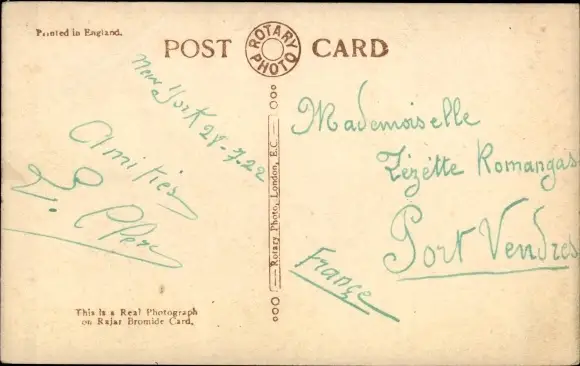 Printed in England.
POST CARD
ROTARY PHOTO
New York 28-7-22
Amitiés
Rotary Photo, London, E.C.
Mademoiselle
Zézétte Romangas
Port Vendres
France
This is a Real Photograph
on Rajar Bromide Card.